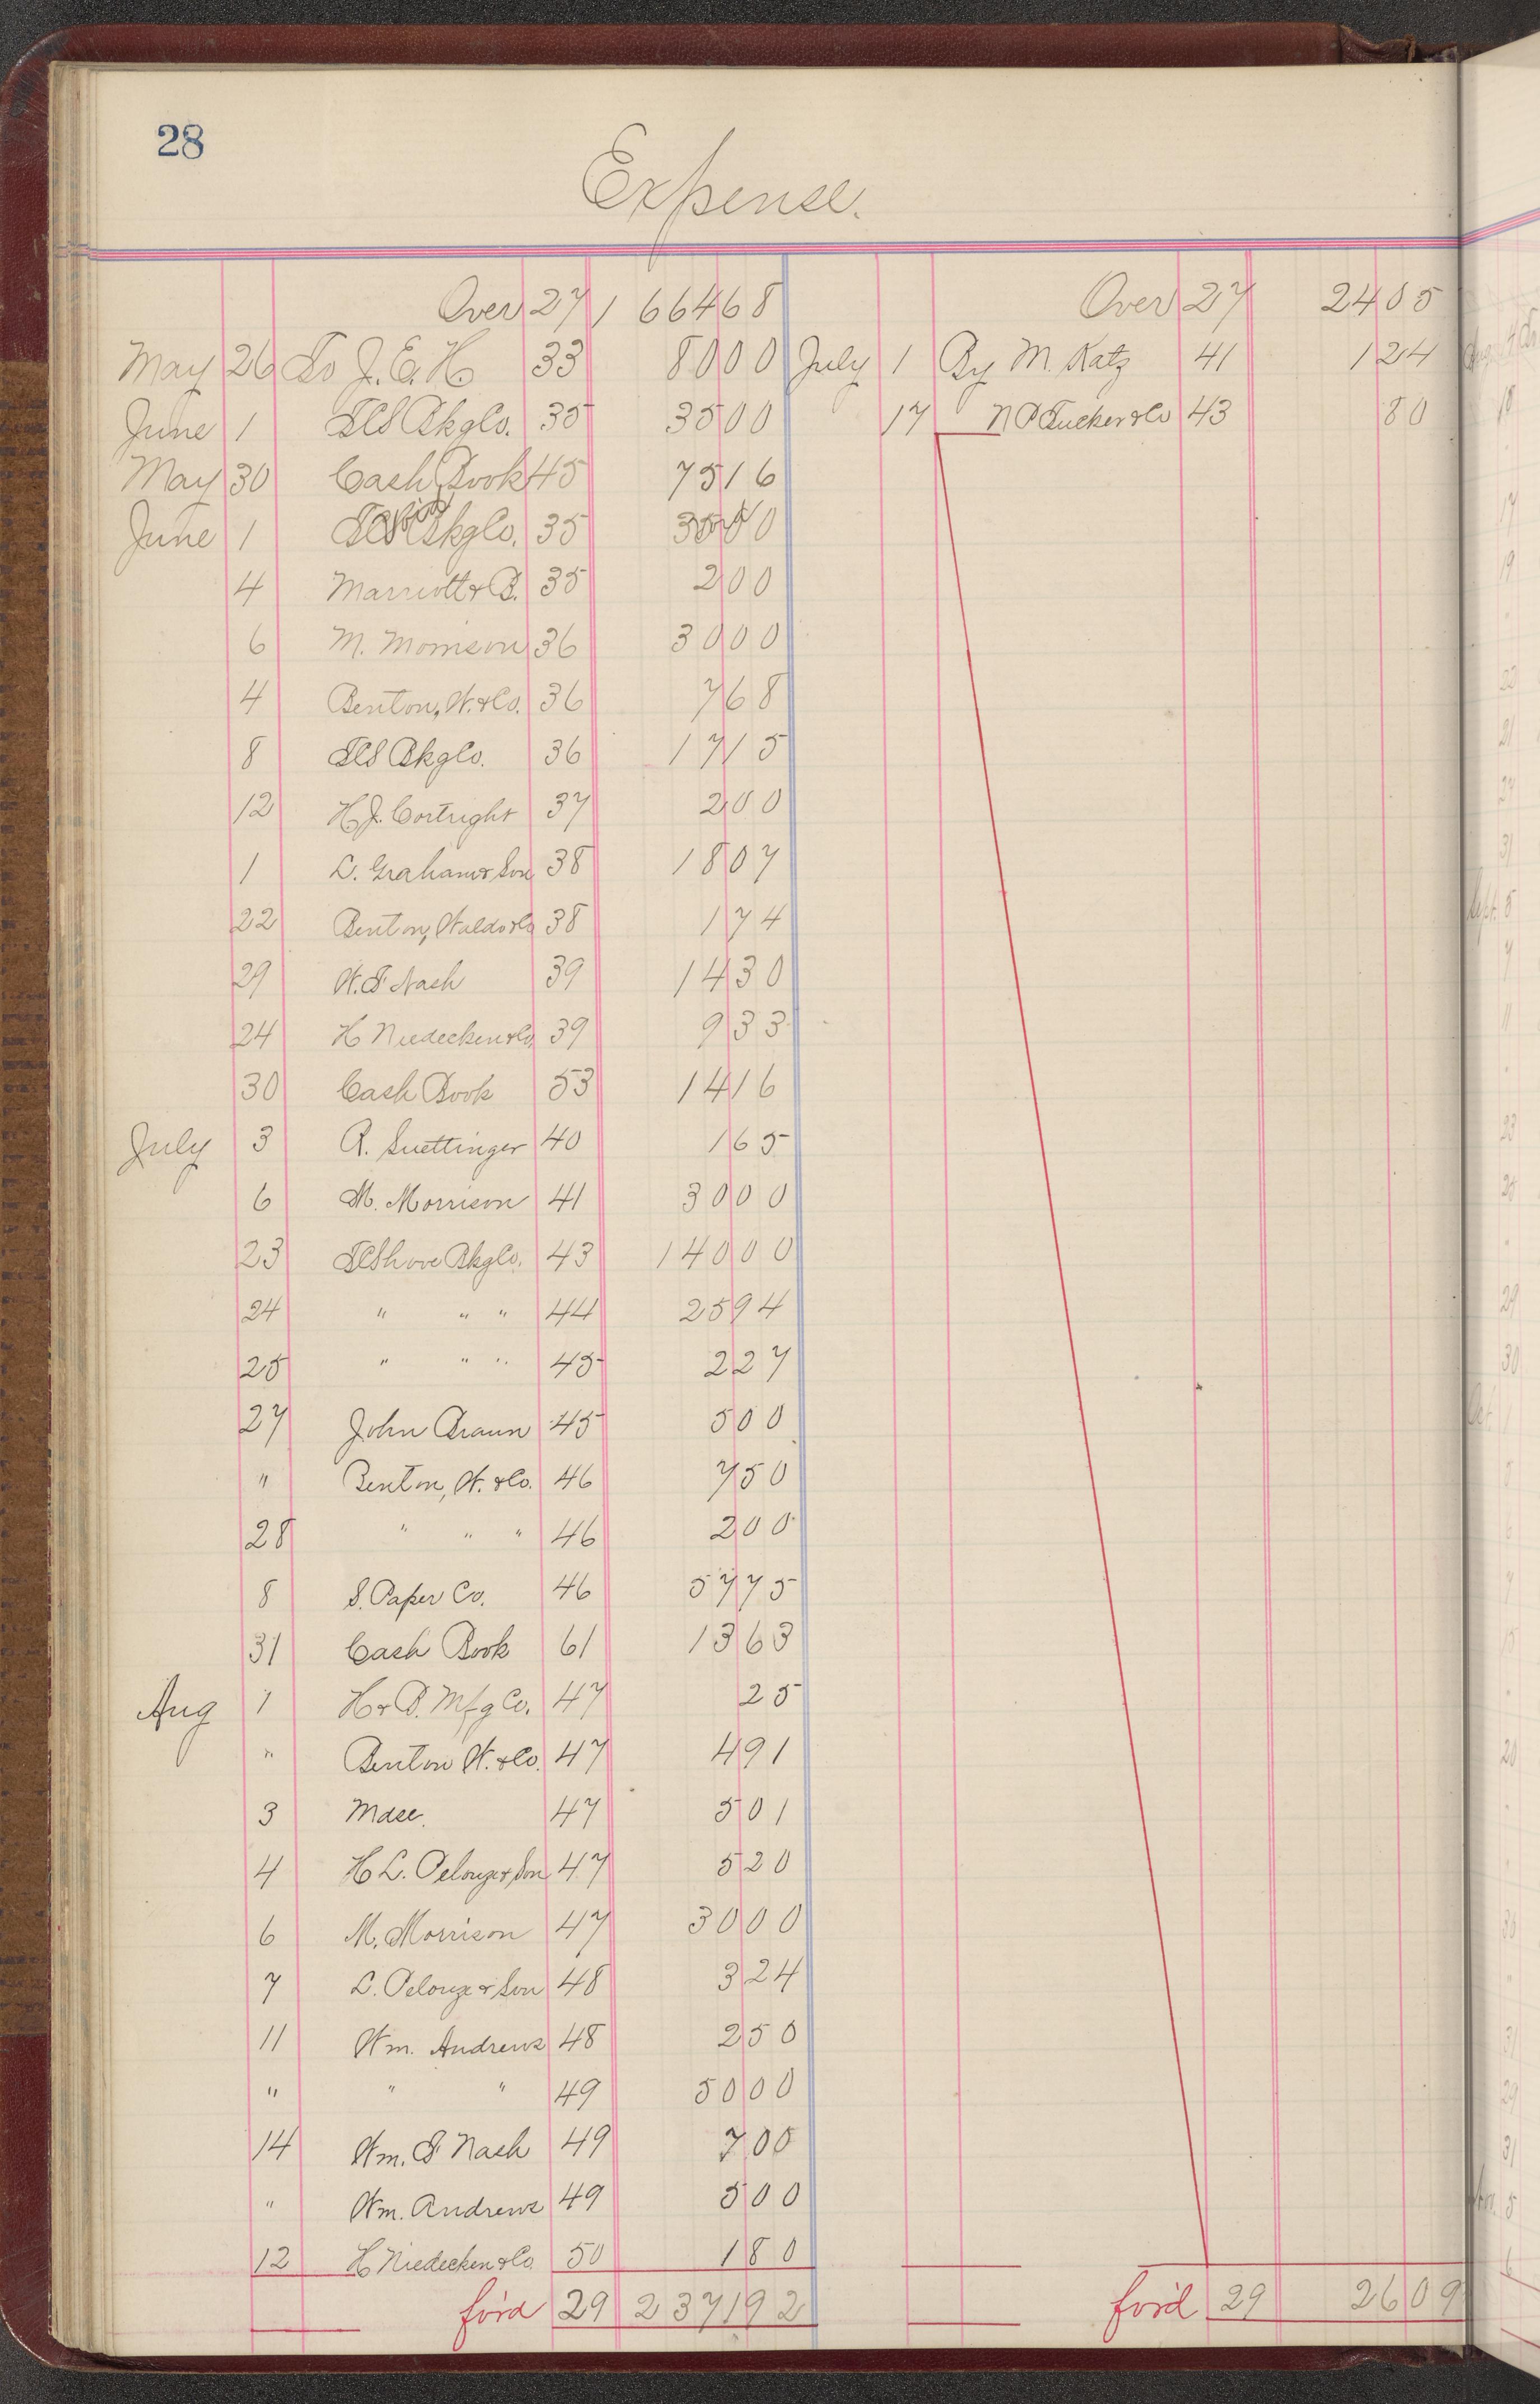 28
Expense.
Over 27 1 664 68
May 26 To J. E. H. 33 80 00
June 1 TCS Bkg Co. 35 35 00
May 30 Cash Book 45 75 16
June 1 TCS Bkg Co. 35 35 00
4 Marriott & B. 35 2 00
6 M. Morrison 36 30 00
4 Benton, W. & Co. 36 7 68
8 TCS Bkg Co. 36 17 15
12 H. J. Cortright 37 2 00
1 L. Graham & Son 38 18 07
22 Benton, Waldo & Co 38 1 74
29 W. F. Nash 39 14 30
24 H Niedecken & Co. 39 9 33
30 Cash Book 53 14 16
July 3 R. Suettinger 40 1 65
6 M. Morrison 41 30 00
23 TCShove Bkg Co. 43 140 00
24 " " " 44 25 94
25 " " " 45 2 27
27 John Braun 45 5 00
" Benton, W. & Co. 46 7 50
28 " " " 46 2 00
8 S. Paper Co. 46 57 75
31 Cash Book 61 13 63
Aug 1 H & B. Mfg Co. 47 25
" Benton W. & Co. 47 4 91
3 Mdse. 47 5 01
4 H L. Pelouze & Son 47 5 20
6 M. Morrison 47 30 00
7 L. Pelouze & Son 48 3 24
11 Wm. Andrews 48 2 50
" " " 49 50 00
14 Wm. F Nash 49 7 00
" Wm. Andrews 49 5 00
12 H Niedecken & Co. 50 1 80
for'd 29 2 371 92
Over 27 24 05
July 1 By M. Katz 41 1 24
17 N P Tucker & Co 43 80
for'd 29 26 09